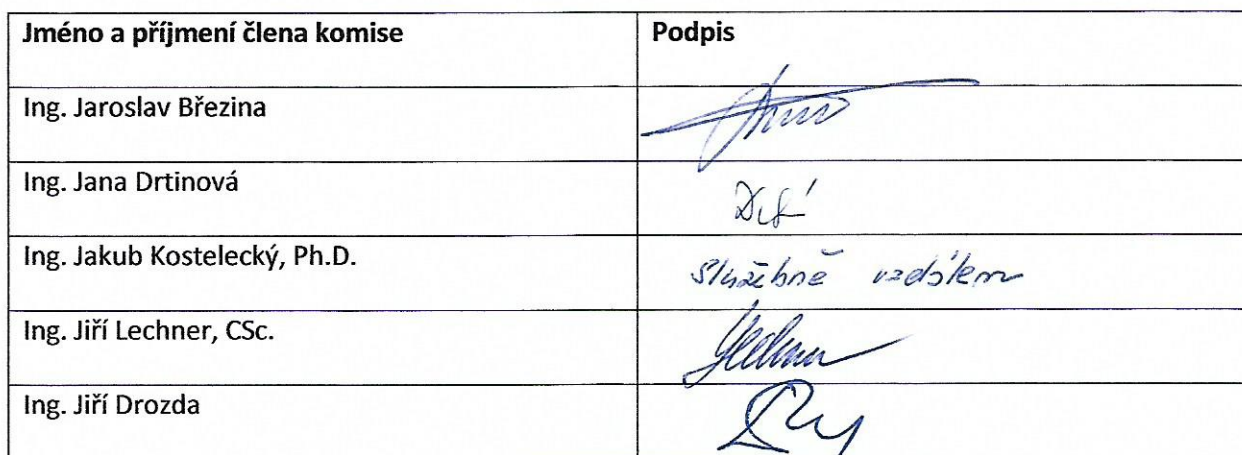 Jméno a příjmení člena komise Podpis
Ing. Jaroslav Březina
Ing. Jana Drtinová
Ing. Jakub Kostelecký, Ph.D. služebně vzdálen
Ing. Jiří Lechner, CSc.
Ing. Jiří Drozda